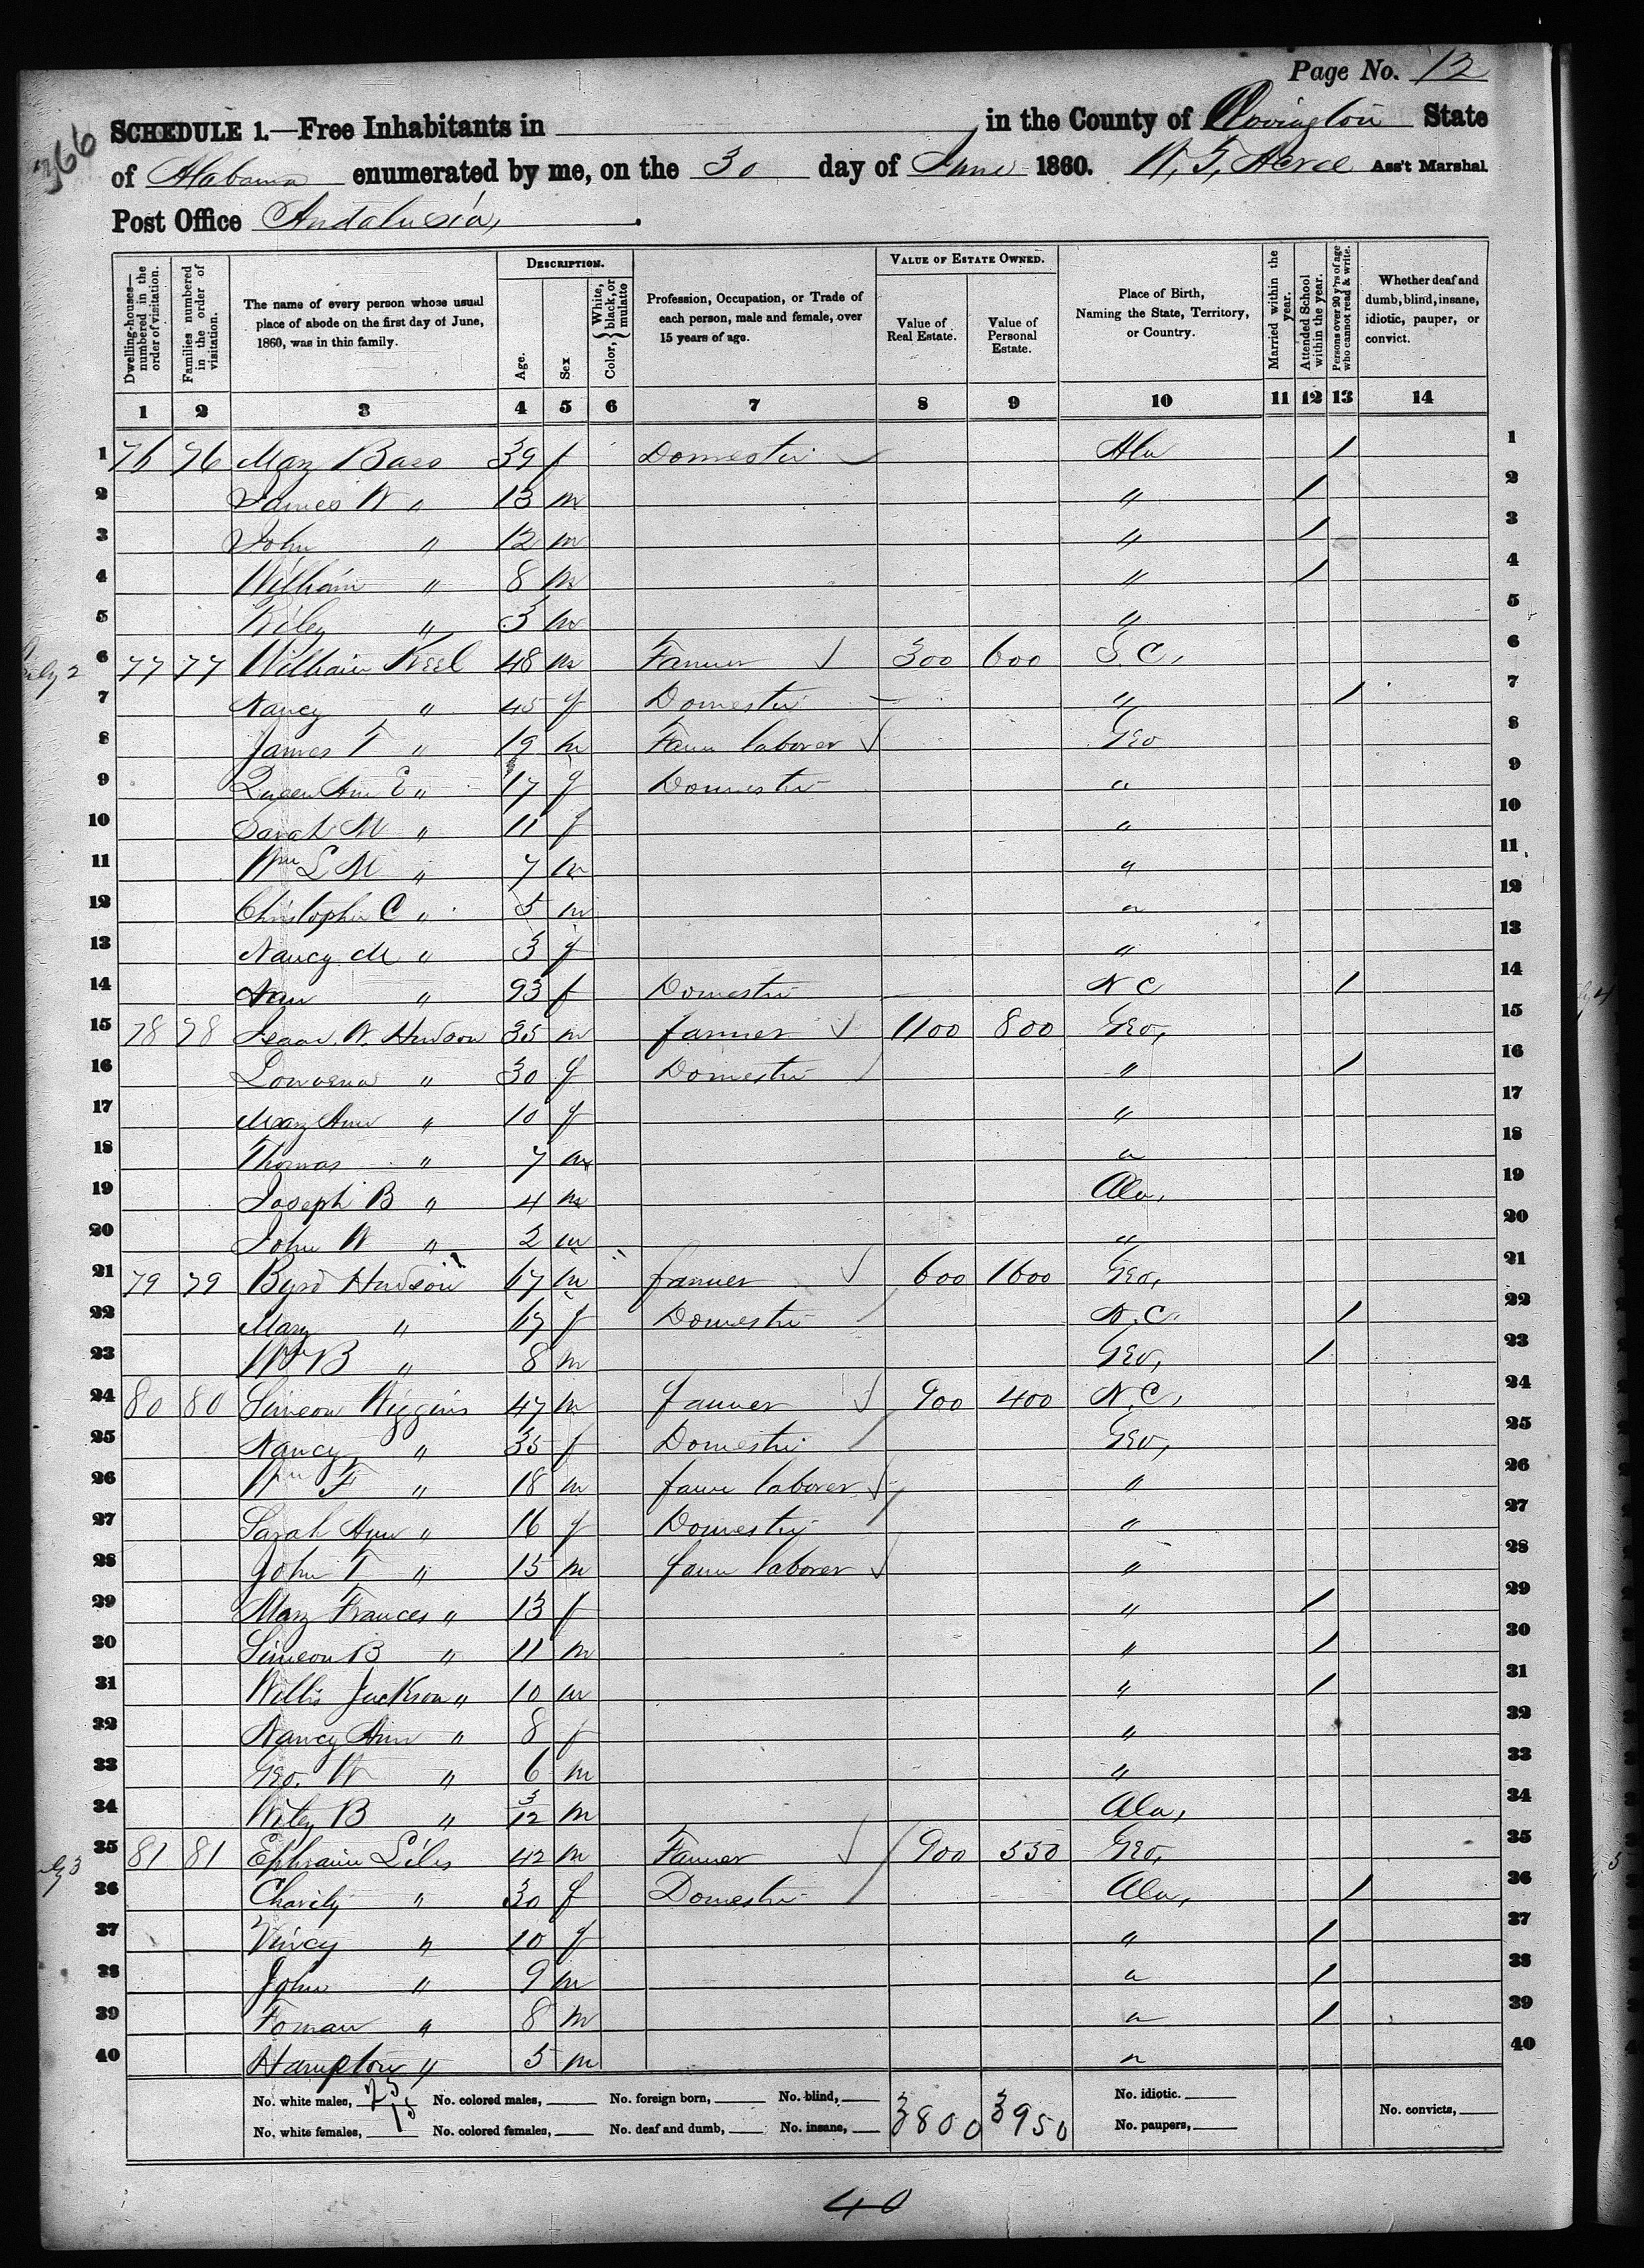 Page No. 12
366
SCHEDULE 1.—Free Inhabitants in in the County of Covington State
of Alabama enumerated by me, on the 30 day of June 1860. Ass't Marshal
Post Office Andalusia,
DESCRIPTION. VALUE OF ESTATE OWNED.
Dwelling-houses—numbered in the order of visitation. Families numbered in the order of visitation. The name of every person whose usual place of abode on the first day of June, 1860, was in this family. Age. Sex Color, White, black, or mulatto Profession, Occupation, or Trade of each person, male and female, over 15 years of age. Value of Real Estate. Value of Personal Estate. Place of Birth, Naming the State, Territory, or Country. Married within the year. Attended School within the year. Persons over 20 y'rs of age who cannot read & write. Whether deaf and dumb, blind, insane, idiotic, pauper, or convict.
1 2 3 4 5 6 7 8 9 10 11 12 13 14
1 76 76 Mary Bass 39 f Domestic Ala / 1
2 James W " 13 m " / 2
3 John " 12 m " / 3
4 William " 8 m " / 4
5 Riley " 3 m " 5
July 2 6 77 77 William Keel 48 m Farmer 300 600 S.C. 6
7 Nancy " 45 f Domestic " / 7
8 James T " 19 m Farm laborer Geo 8
9 Queen Ann E " 17 f Domestic " 9
10 Sarah M " 11 f " 10
11 Wm L M " 7 m " 11
12 Christopher C " 5 m " 12
13 Nancy M " 3 f " 13
14 Ann " 93 f Domestic N C / 14
15 78 78 Isaac W. Hudson 35 m farmer 1100 800 Geo, 15
16 Louvena " 30 f Domestic " / 16
17 Mary Ann " 10 f " 17
18 Thomas " 7 m " 18
19 Joseph B " 4 m Ala, 19
20 John W " 2 m " 20
21 79 79 Byrd Hudson 67 m farmer 600 1600 Geo, 21
22 Mary " 67 f Domestic N.C. / 22
23 Wm B " 8 m Geo, / 23
24 80 80 Simeon Wiggins 47 m farmer 900 400 N.C, 24
25 Nancy " 35 f Domestic Geo, 25
26 Wm F " 18 m farm laborer " 26
27 Sarah Ann " 16 f Domestic " 27
28 John T " 15 m farm laborer " 28
29 Mary Frances " 13 f " / 29
30 Simeon B " 11 m " / 30
31 Willis Jackson " 10 m " / 31
32 Nancy Ann " 8 f " 32
33 Geo. W " 6 m " 33
34 Wiley B " 3/12 m Ala, 34
35 81 81 Ephraim 42 m Farmer 900 550 Geo, 35
36 Charity " 30 f Domestic Ala, / 36
37 Vincy " 10 f " / 37
38 John " 9 m " / 38
39 " 8 m " / 39
40 Hampton " 5 m " 40
No. white males, 25 No. colored males, No. foreign born, No. blind, 3800 3950 No. idiotic.
No. white females, 15 No. colored females, No. deaf and dumb, No. insane, No. paupers, No. convicts,
40